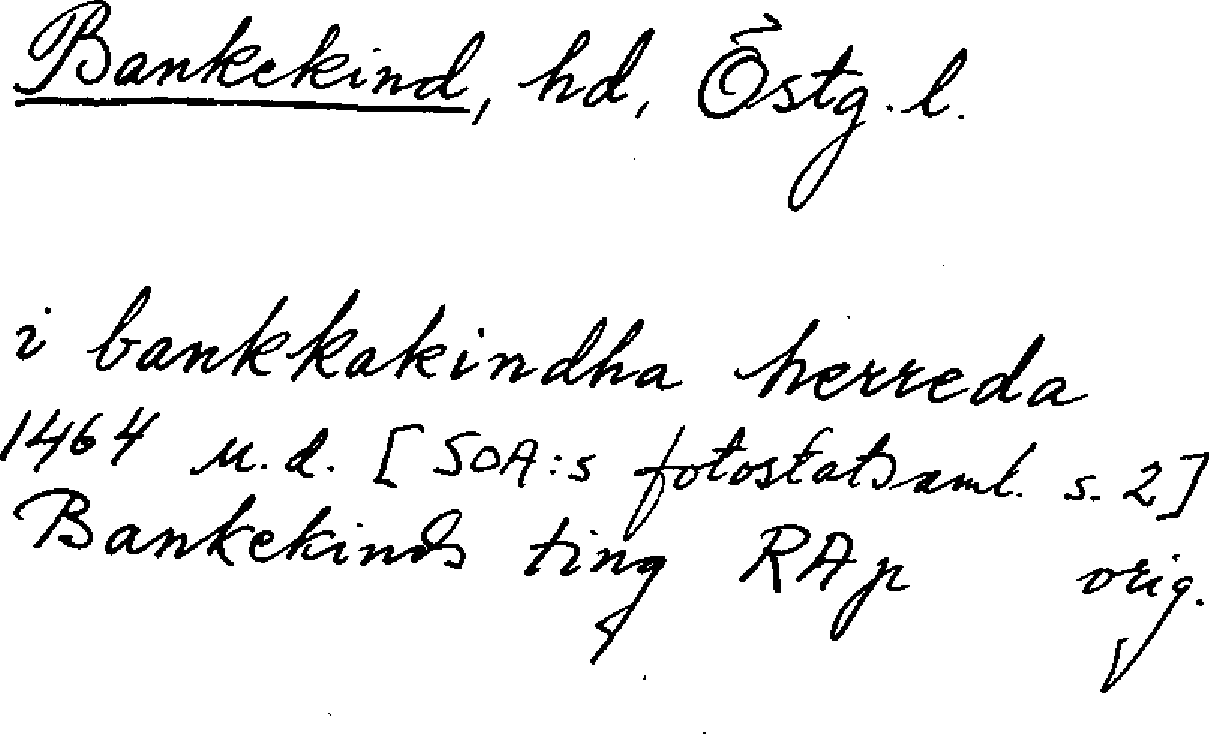 Bankekind, hd, Östg. l.
i bankkakindha herreda
1464 u.d. [SOA:s fotostatsaml. s. 2]
Bankekinds ting RAp orig.